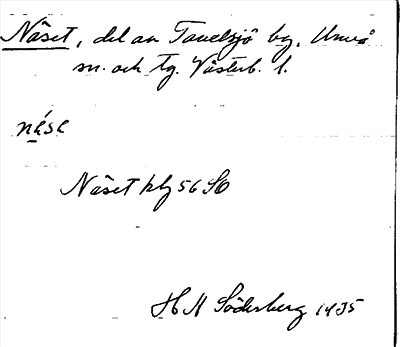 Näset, del av Tavelsjö by, Umeå
sn. och tg. Västerb. l.
nä́se
Näset hlg 56 SO
H N Söderberg 1935